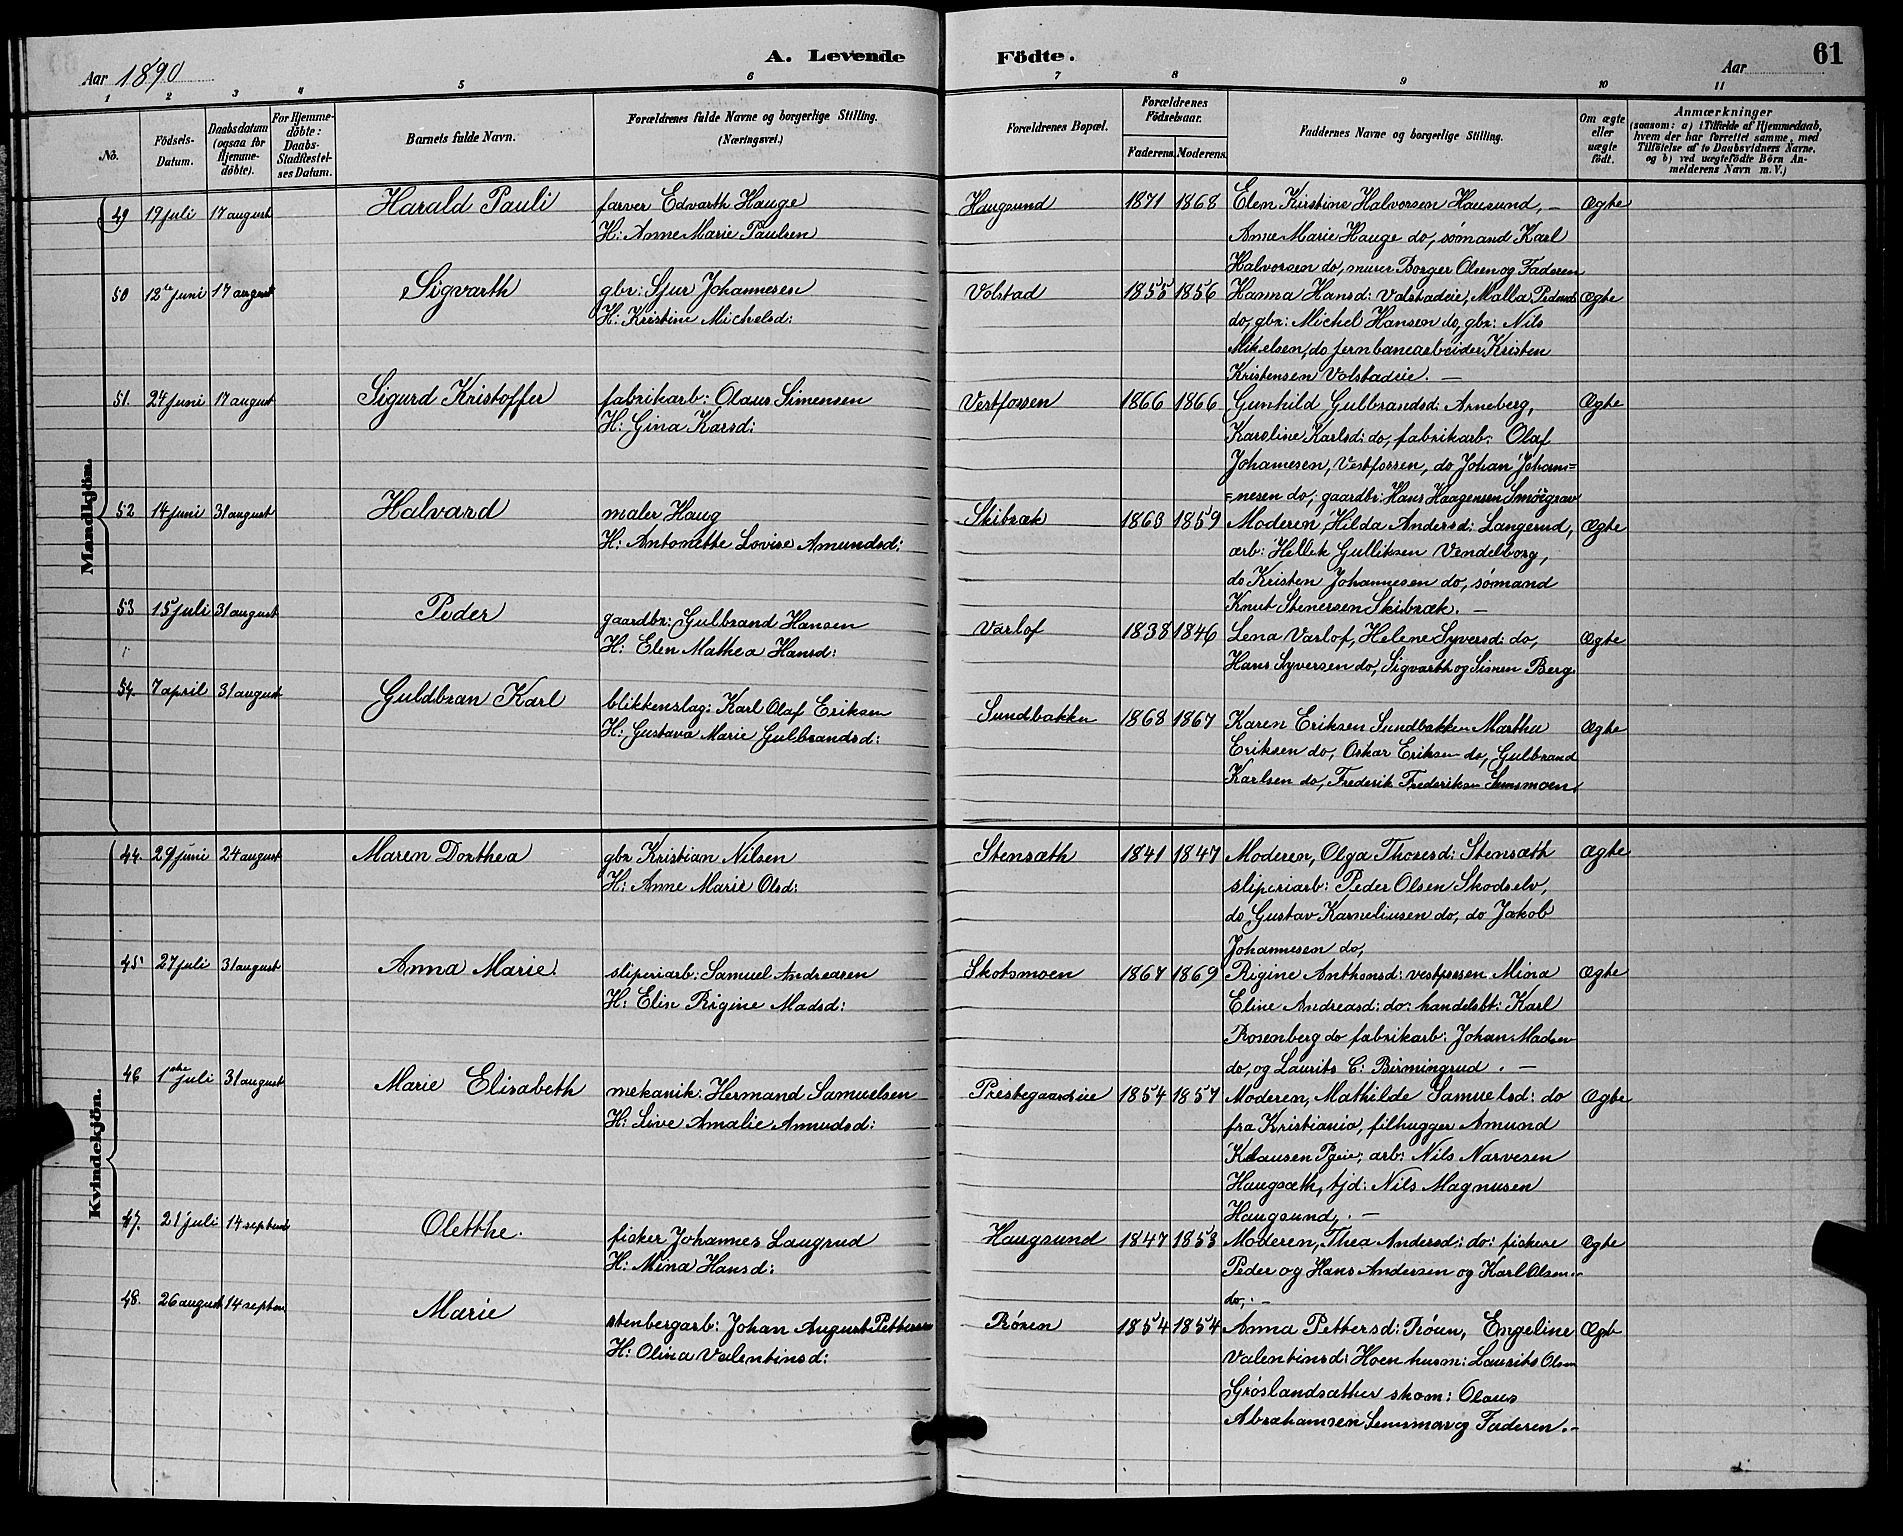 Aar 1890
A. Levende Födte.
Aar
61
1 2 3 4 5 6 7 8 9 10 11
No.
Födsels-Datum.
Daabsdatum (ogsaa for Hjemme-döbte).
For Hjemme-döbte: Daabs-Stadfæstel-ses Datum.
Barnets fulde Navn.
Forældrenes fulde Navne og borgerlige Stilling. (Næringsvei.)
Forældrenes Bopæl.
Forældrenes Födselsaar.
Faderens. Moderens.
Faddernes Navne og borgerlige Stilling.
Om ægte eller uægte födt.
Anmærkninger
(saasom: a) i Tilfælde af Hjemmedaab, hvem der har forrettet samme, med Tilföielse af to Daabsvidners Navne, og b) ved uægtefödte Börn An-melderens Navn m. V.)
Mandkjön.
49 19 juli 17 august Harald Pauli farver Edvarth Hauge Haugsund 1871 1868 Elen Kirstine Halvorsen Hausund, – Ægte
H: Anne Marie Paulsen Anne Marie Hauge do, sømand Karl
Halvorsen do, murer Borger Olsen og Faderen
50 12te juni 17 august Sigvarth gbr: Sjur Johannesen Volstad 1855 1856 Hanna Hansd: Volstadeie, Malla Pedersd Ægte
H: Kristine Michelsd: do, gbr: Michel Hansen do, gbr: Nils
Mikelsen, do jernbanearbeider, Kristen
Kristensen Volstadeie. –
51. 24 juni 17 august Sigurd Kristoffer fabrikarb: Olaus Simensen Vestfossen 1866 1866 Gunhild Gulbrandsd: Arneberg, Ægte
H: Gina Karsd: Karoline Karlsd: do, fabrikarb: Olaf
Johannesen, Vestfossen, do Johan Johan=
=nesen do, gaardbr: Hans Haagensen Smörgrav
52 14 juni 31 august Halvard maler Haug Skibræk 1863 1859 Moderen, Hilda Andersd: Langerud, Ægte
H: Antonette Lovise Amundsd: arb: Hellek Gulliksen Vendelborg,
do Kristen Johannesen do, sømand
Knut Stenersen Skibræk. –
53 15 juli 31 august Peder gaardbr: Gulbrand Hansen Varlof 1838 1846 Lena Varlof, Helene Syversd: do, Ægte
H: Elen Mathea Hansd: Hans Syversen do, Sigvarth og Simen Berg.
54. 7 april 31 august Guldbran Karl blikkenslag: Karl Olaf Eriksen Sundbakken 1868 1867 Karen Eriksen Sundbakken Martha Ægte
H: Gustava Marie Gulbrandsd: Eriksen do, Oskar Eriksen do, Gulbrand
Karlsen do, Frederik Frederiksen Semsmoen.
Kvindekjön.
44. 29 juni 24 august Maren Dorthea gbr Kristian Nilsen Stensæth 1841 1847 Moderen, Olga Thoresd: Stensæth Ægte
H: Anne Marie Olsd: sliperiarb: Peder Olsen Skodselv,
do Gustav Karneliusen do, do Jakob
Johannesen do,
45 27 juli 31 august Anna Marie. sliperiarb: Samuel Andreasen Skotsmoen 1867 1869 Rigine Anthonsd: vestfossen Mina Ægte
H: Elin Rigine Madsd: Eline Andreasd: do: handelsbt: Karl
Rosenberg do fabrikarb: Johan Madsen
do, og Laurits C: Birmingrud. –
46 1ste juli 31 august Marie Elisabeth mekanik: Hermand Samuelsen Prestegaardseie 1854 1857 Moderen, Mathilde Samuelsd: do Ægte
H: Sive Amalie Amudsd: fra Kristiania, filhugger Amund
Klausen Pgeie, arb: Nils Narvesen
Haugsæth, tjd: Nils Magnusen
Haugsund. –
47. 21 juli 14 septemb Oletthe. fisker Johannes Laugrud Haugsund 1847 1853 Moderen, Thea Andersd: do: fiskere Ægte
H: Mina Hansd: Peder og Hans Andersen og Karl Olsen
do, –
48. 26 august 14 septem Marie stenbergarb: Johan August Pettersen Rören 1854 1854 Anna Pettersd: Röen, Engeline Ægte
H: Olina Valentinsd: Valentinsd: Hoen husm: Laurits Olsen
Gröslandsæther skom: Olaus
Abrahamsen Semsmo og Faderen. –